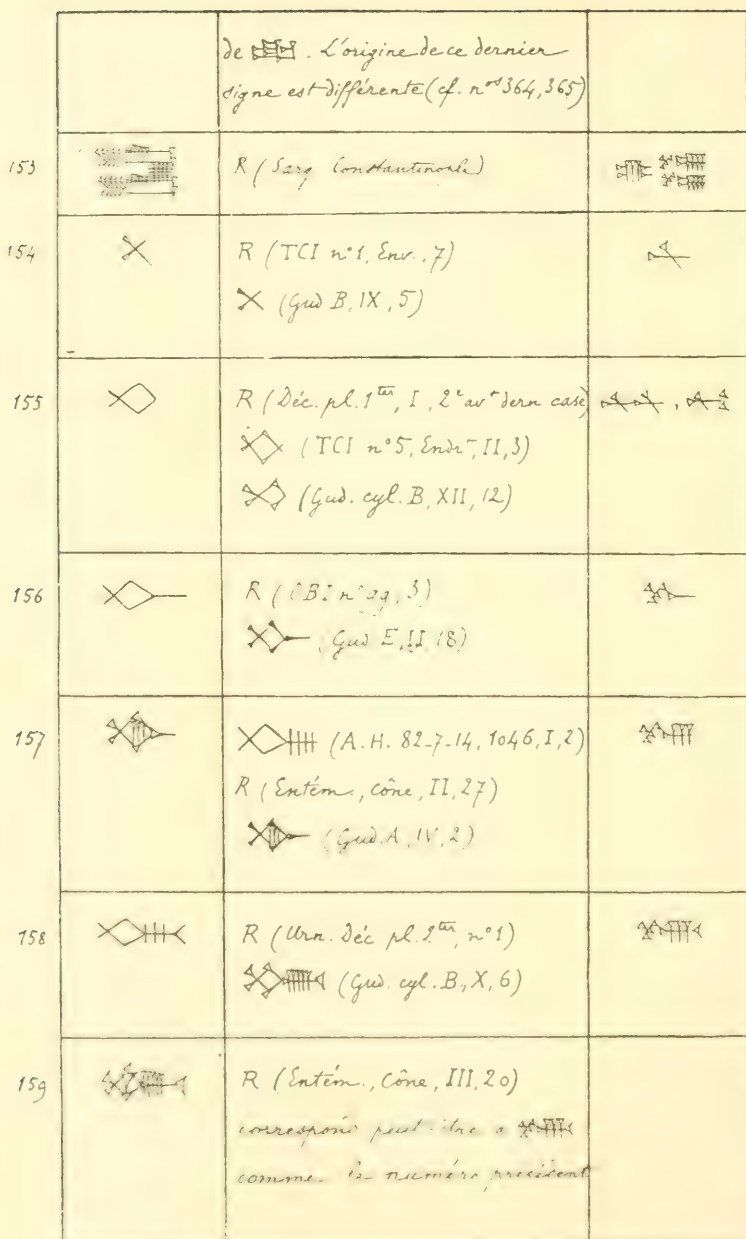 de . L'origine de ce dernier
signe est différente (cf. nos 364, 365)
153 R (Sarg Constantinople)
154 R (TCI n°1, Env., 7)
(Gud B, IX, 5)
155 R (Déc. pl. 1ter, I, 2e avt dern case) ,
(TCI n°5, Endrt, II, 3)
(Gud. cyl. B, XII, 12)
156 R (OBI n° , 3)
(Gud E, II 18)
157 (A.H. 82-7-14, 1046, I, 2)
R (Entém., Cône, II, 27)
(Gud. A, IV, 2)
158 R (Urn. Déc pl. ter, n°1)
(Gud. cyl. B, X, 6)
159 R (Entém., Cône, III, 20)
correspond peut-être a
comme le numéro précédent